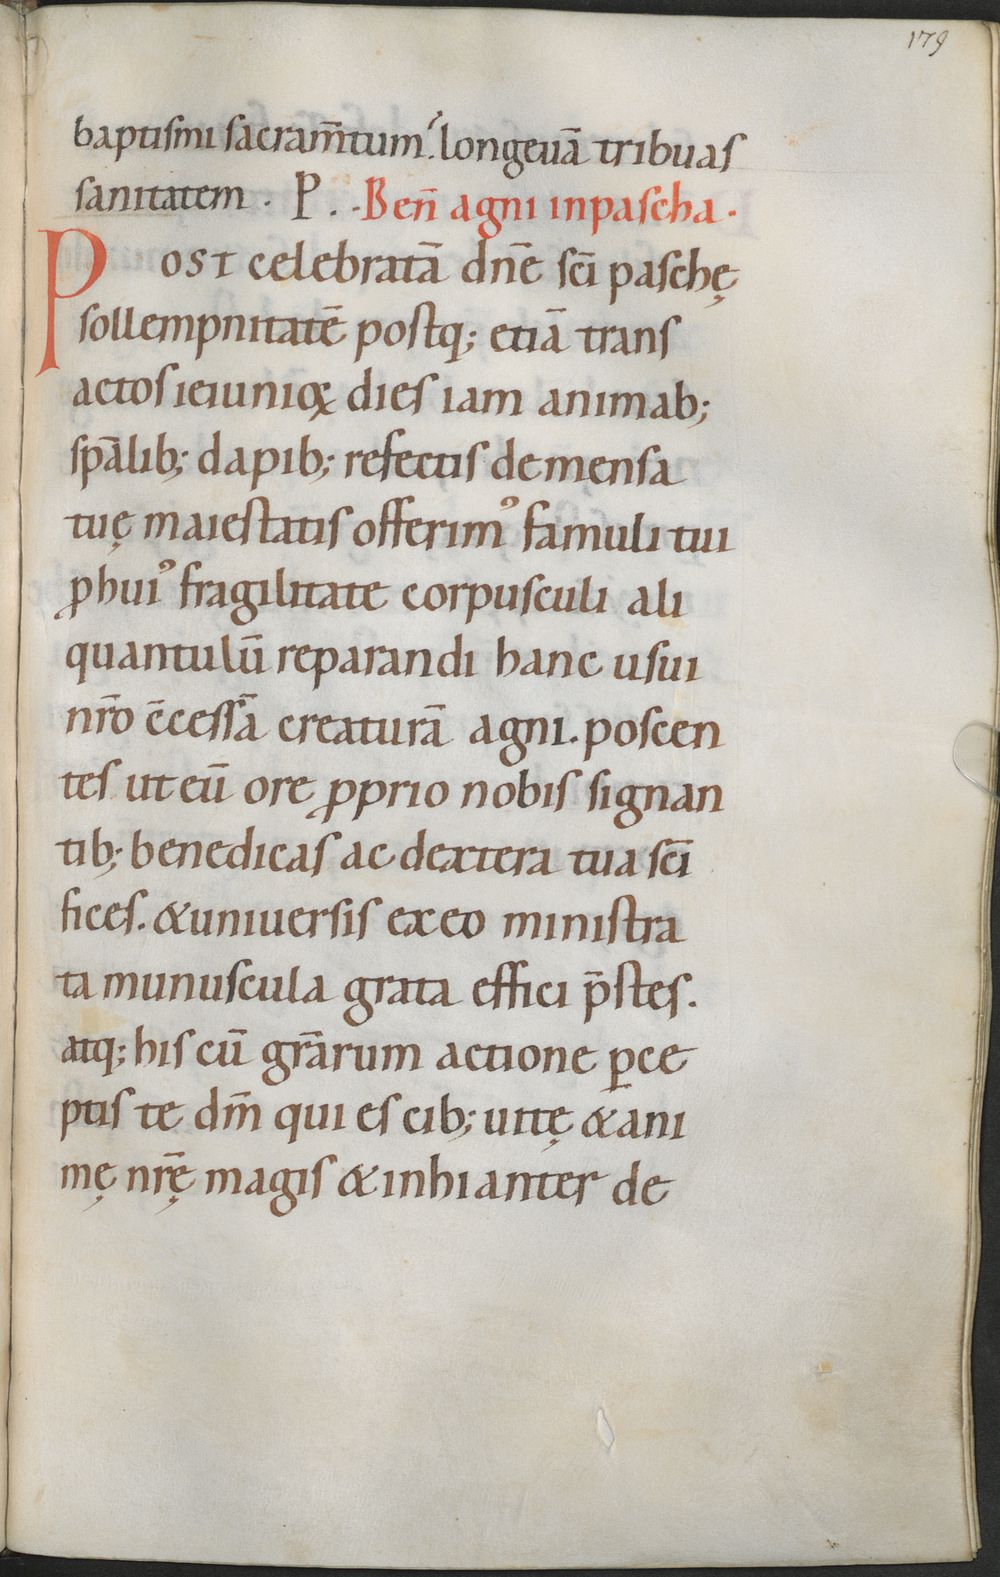 179
baptismi sacram̄tum. longeuā tribuas
sanitatem . P . . Ben̄ agni inpascha .
Post celebratā dn̄e sc̄i paschę
sollempnitatē postq; etiā trans
actos ieiuniоꝝ dies iam animab;
sp̄alib; dapib; refectis de mensa
tuę maiestatis offerimꝰ famuli tui
ꝓ huiꝰ fragilitate corpusculi ali
quantulū reparandi hanc usui
nr̄o c̄cessā creaturā agni. poscen
tes ut eū ore ꝓprio nobis signan
tib; benedicas ac dextera tua sc̄i
fices. & uniuersis ex eo ministra
ta munuscula grata effici p̄stes.
atq; his cū gr̄arum actione ꝑce
ptis te dm̄ qui es cib; uitę & ani
mę nr̄ę magis & inhianter de